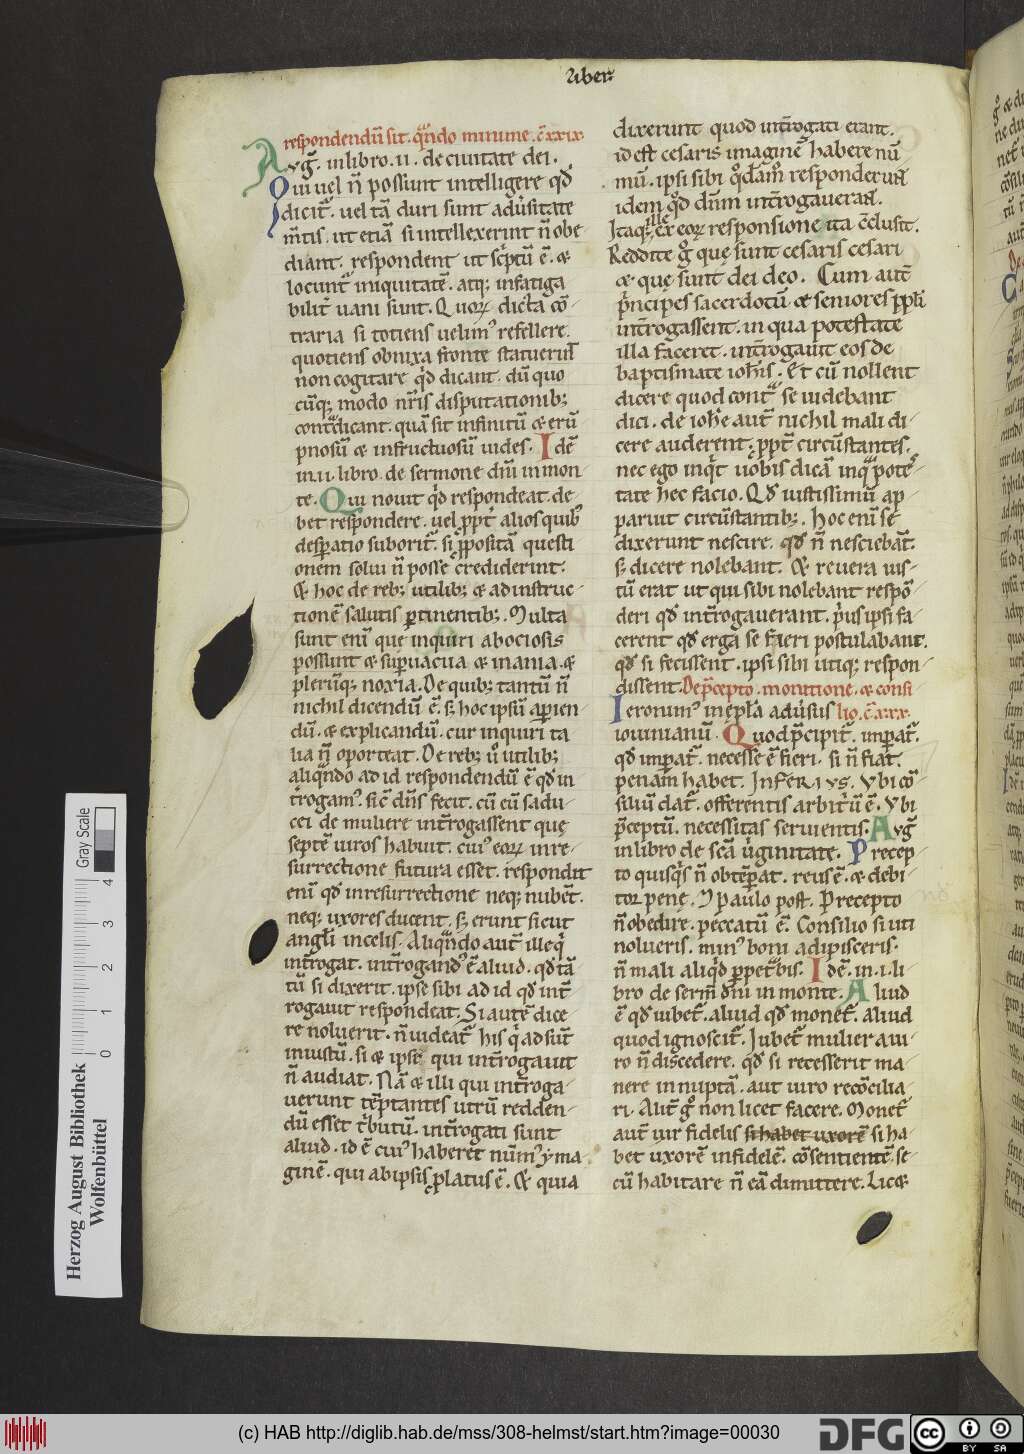 liber
respondendū sit. qn̄do minime. c̄xxix.
Avḡ. in libro. ii. de ciuitate dei.
Qui uel n̄ possunt intelligere qd̄
dicit᷑. uel tā duri sunt adūsitate
m̄tis. ut etiā si intellexerint n̄ obe
diant. respondent ut sc̄ptū ē. &
locunt᷑ iniquitatē. atq; infatiga
bilit̄ uani sunt. Quoꝝ dicta cō-
traria si totiens uelim᷒ refellere.
quotiens obnixa fronte statuerīt
non cogitare qd̄ dicant. dū quo
cūq; modo nr̄is disputationib;
cont̄dicant. quā sit infinitū & erū
pnosū & infructuosū uides. Idē
in. ii. libro. de sermone dn̄i in mon-
te. Qui nouit qd̄ respondeat. de-
bet respondere. uel ꝓpt̄ alios quib᷒
desꝑatio suborit᷑. si ꝓpositā questi
onem solui n̄ posse crediderint.
& hoc de reb; utilib; & ad instruc-
tionē salutis ꝑtinentib;. Multa
sunt enī que inquiri ab ociosis
possunt & suꝑuacua & inania. &
plerūq; noxia. De quib; tantū n̄
nichil dicendū ē. s; hoc ipsū aꝑien
dū. & explicandū. cur inquiri ta
lia n̄ oporteat. De reb; ů utilib;
aliqn̄do ad id respondendū ē qd̄ in
t̄rogam᷒. sic̄ dn̄s fecit. cū eū sadu-
cei de muliere int̄rogassent que
septē uiros habuit. cui᷒ eoꝝ in re-
surrectione futura esset. respondit
enī qd̄ in resurrectione neq; nubent̄.
neq; uxores ducent. s; erunt sicut
angl̄i in celis. Aliqn̄do aut̄ ille q̇
int̄rogat. int̄rogand᷒ ē aliud. qd̄ tā
tū si dixerit. ipse sibi ad id qd̄ int̄
rogauit respondeat. Si autē dice-
re noluerit. n̄ uideat᷑ his q̇ adsūt
iniustū. si & ipse qui int̄rogauit
n̄ audiat. Nā & illi qui int̄roga-
uerunt tēptantes utrū redden-
dū esset tͥbutū. int̄rogati sunt
aliud. id ē cui᷒ haberet nūm᷒ yma-
ginē. qui ab ipsis ꝓlatus ē. & quia
dixerunt quod int̄rogati erant.
id est cesaris imaginē habere nū
mū. ipsi sibi qͦdam̄ responderūt
idem qd̄ dn̄m int̄rogauerant.
Itaq; ille ex eoꝝ responsione ita c̄clusit.
Reddite gͦ que sunt cesaris cesari
& que sunt dei deo. Cum aut̄
pͥncipes sacerdotū & seniores ppl̄i
int̄rogassent. in qua potestate
illa faceret. int̄rogauit eos de
baptismate ioh̄is. Et cū nollent
dicere quod cont̄ se uidebant
dici. de ioh̄e aut̄ nichil mali di-
cere auderent. ꝓpt̄ circūstantes.
nec ego inqͥt uobis dicā in qͣ pote-
tate hec facio. Qd̄ iustissimū ap-
paruit circūstantib;. Hoc enī se
dixerunt nescire. qd̄ n̄ nesciebāt.
s; dicere nolebant. & reuera ius-
tū erat ut qui sibi nolebant respō-
deri qd̄ int̄rogauerant. pͥus ipsi fa-
cerent qd̄ erga se fieri postulabant.
qd̄ si fecissent. ipsi sibi utiq; respon-
dissent. De p̄cepto. monitione. & consi
Ieronim᷒ in epl̄a aduͥsus lio. c̄xxx.
iouinianū. Quod p̄cipit᷑. imꝑat᷑.
qd̄ imꝑat᷑. necesse ē fieri. si n̄ fiat.
penam habet. INFERIVS. Vbi cō-
siliū dat᷑. offerentis arbitͥū ē. Vbi
p̄ceptū. necessitas seruientis. Avḡ
in libro de sc̄a uͥginitate. Precep-
to quisqͥs n̄ obtēꝑat. reus ē. & debi-
tor pene. M paulo post. Precepto
n̄ obedire. peccatū ē. Consilio si uti
nolueris. min᷒ boni adipisceris.
n̄ mali aliqͥd ꝑpet᷑bis. Idē. in. i. li-
bro de serm̄ dn̄i in monte. Aliud
ē qd̄ iubet᷑. aliud qd̄ monet᷑. aliud
quod ignoscit᷑. Iubet᷑ mulier a ui-
ro n̄ discedere. qd̄ si recesserit ma-
nere innuptā. aut uiro recōcilia-
ri. Alit̄ gͦ non licet facere. Monet᷑
aut̄ uir fidelis si habet uxorē si ha-
bet uxorē infidelē. cōsentientē se-
cū habitare n̄ eā dimittere. Lic&
Herzog August Bibliothek
Wolfenbüttel
0 1 2 3 4
Gray Scale
(c) HAB http://diglib.hab.de/mss/308-helmst/start.htm?image=00030
DFG
cc
BY SA